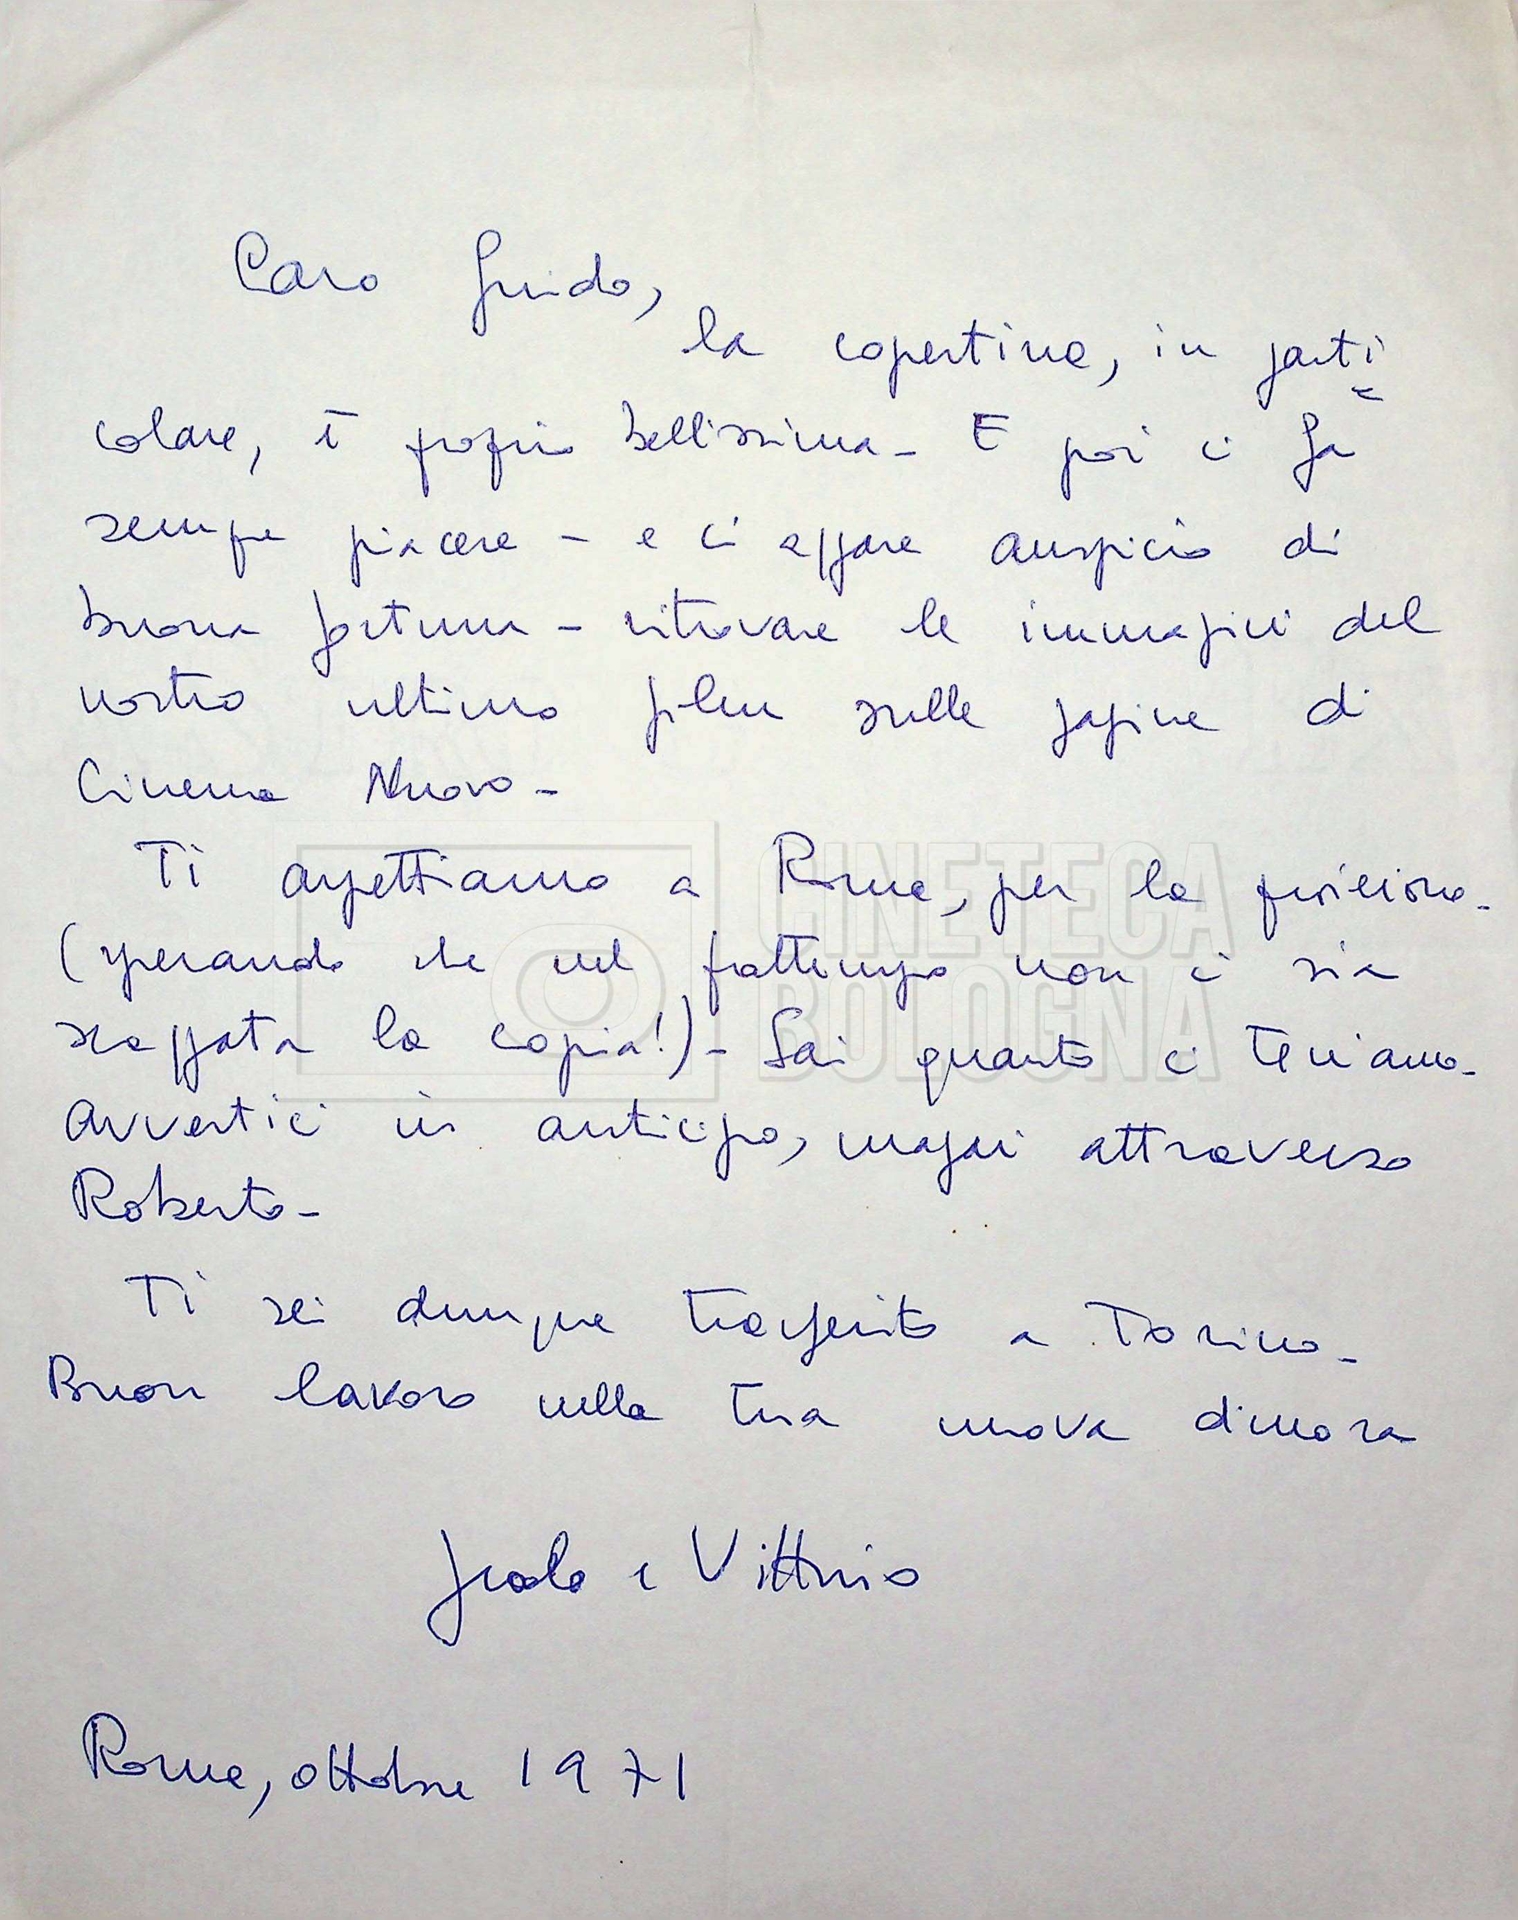 Caro Guido,
la copertina, in parti=
colare, è proprio bellissima - E poi ci fa
sempre piacere - e ci appare auspicio di
buona fortuna - ritrovare le immagini del
nostro ultimo film sulle pagine di
Cinema Nuovo -
Ti aspettiamo a Roma, per la proiezione -
(sperando che nel frattempo non ci sia
scappata la copia!) - Sai quanto ci teniamo -
Avvertici in anticipo, magari attraverso
Roberto -
Ti sei dunque trasferito a Torino -
Buon lavoro nella tua nuova dimora
Paolo e Vittorio
Roma, ottobre 1971
CINETECA
BOLOGNA